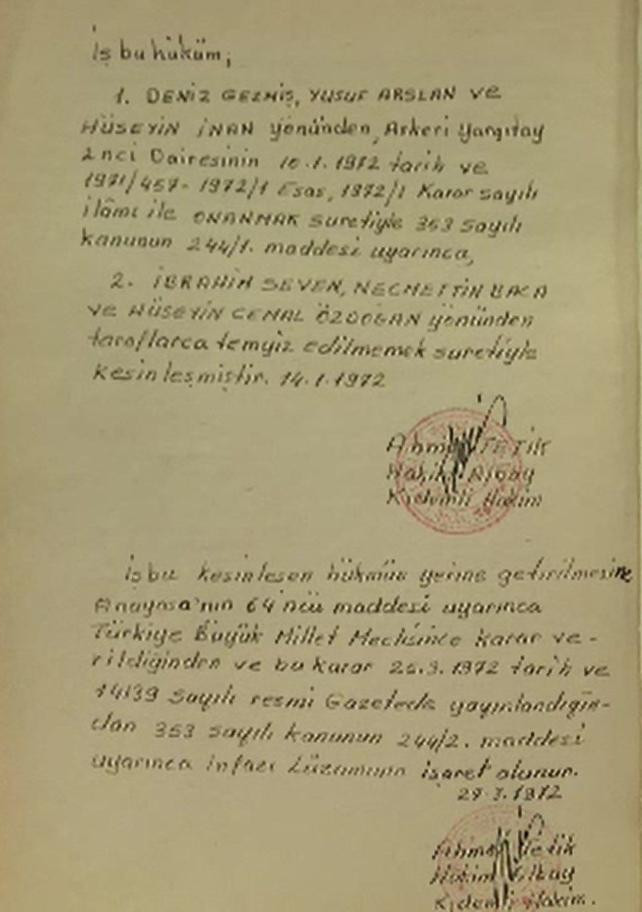 İş bu hüküm;
1. DENİZ GEZMİŞ, YUSUF ARSLAN ve
HÜSEYİN İNAN yönünden, Askeri Yargıtay
2 nci Dairesinin 10.1.1972 tarih ve
1971/457-1972/1 Esas, 1972/1 Karar sayılı
ilâmı ile ONANMAK suretiyle 353 sayılı
kanunun 244/1. maddesi uyarınca,
2. İBRAHİM SEVEN, NECMETTİN BACA
ve HÜSEYİN CEMAL ÖZDOĞAN yönünden
taraflarca temyiz edilmemek suretiyle
kesinleşmiştir. 14.1.1972
Ahmet TETİK
Hakim Albay
Kıdemli Hakim
İşbu kesinleşen hükmün yerine getirilmesine
Anayasa'nın 64 ncü maddesi uyarınca
Türkiye Büyük Millet Meclisince karar ve-
rildiğinden ve bu karar 3.1972 tarih ve
14139 sayılı resmi Gazetede yayınlandığın-
dan 353 sayılı kanunun 244/2. maddesi
uyarınca infazı Lüzumuna işaret olunur.
3.1972
Ahmet Tetik
Hakim Albay
Kıdemli Hakim.